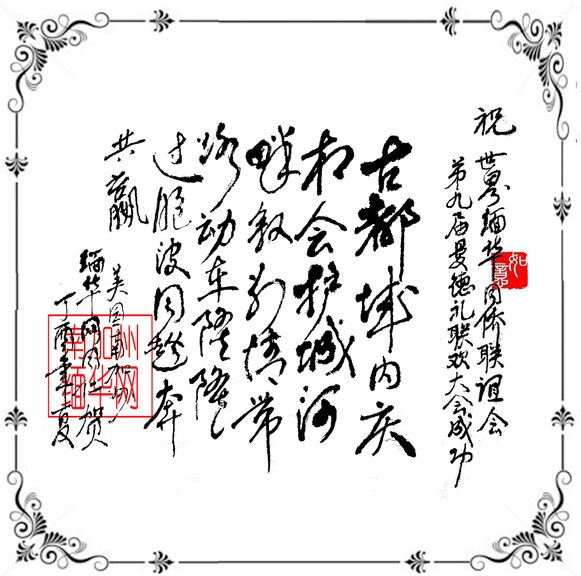 祝 世界缅华同侨联谊会
第九届曼德礼联欢大会成功
如意
古都城内庆
相会护城河
畔叙别情带
路动车隆隆
过胞波同趋奔
共赢
美国南加州
缅华网同仁贺
丁酉夏
南加州
缅华网